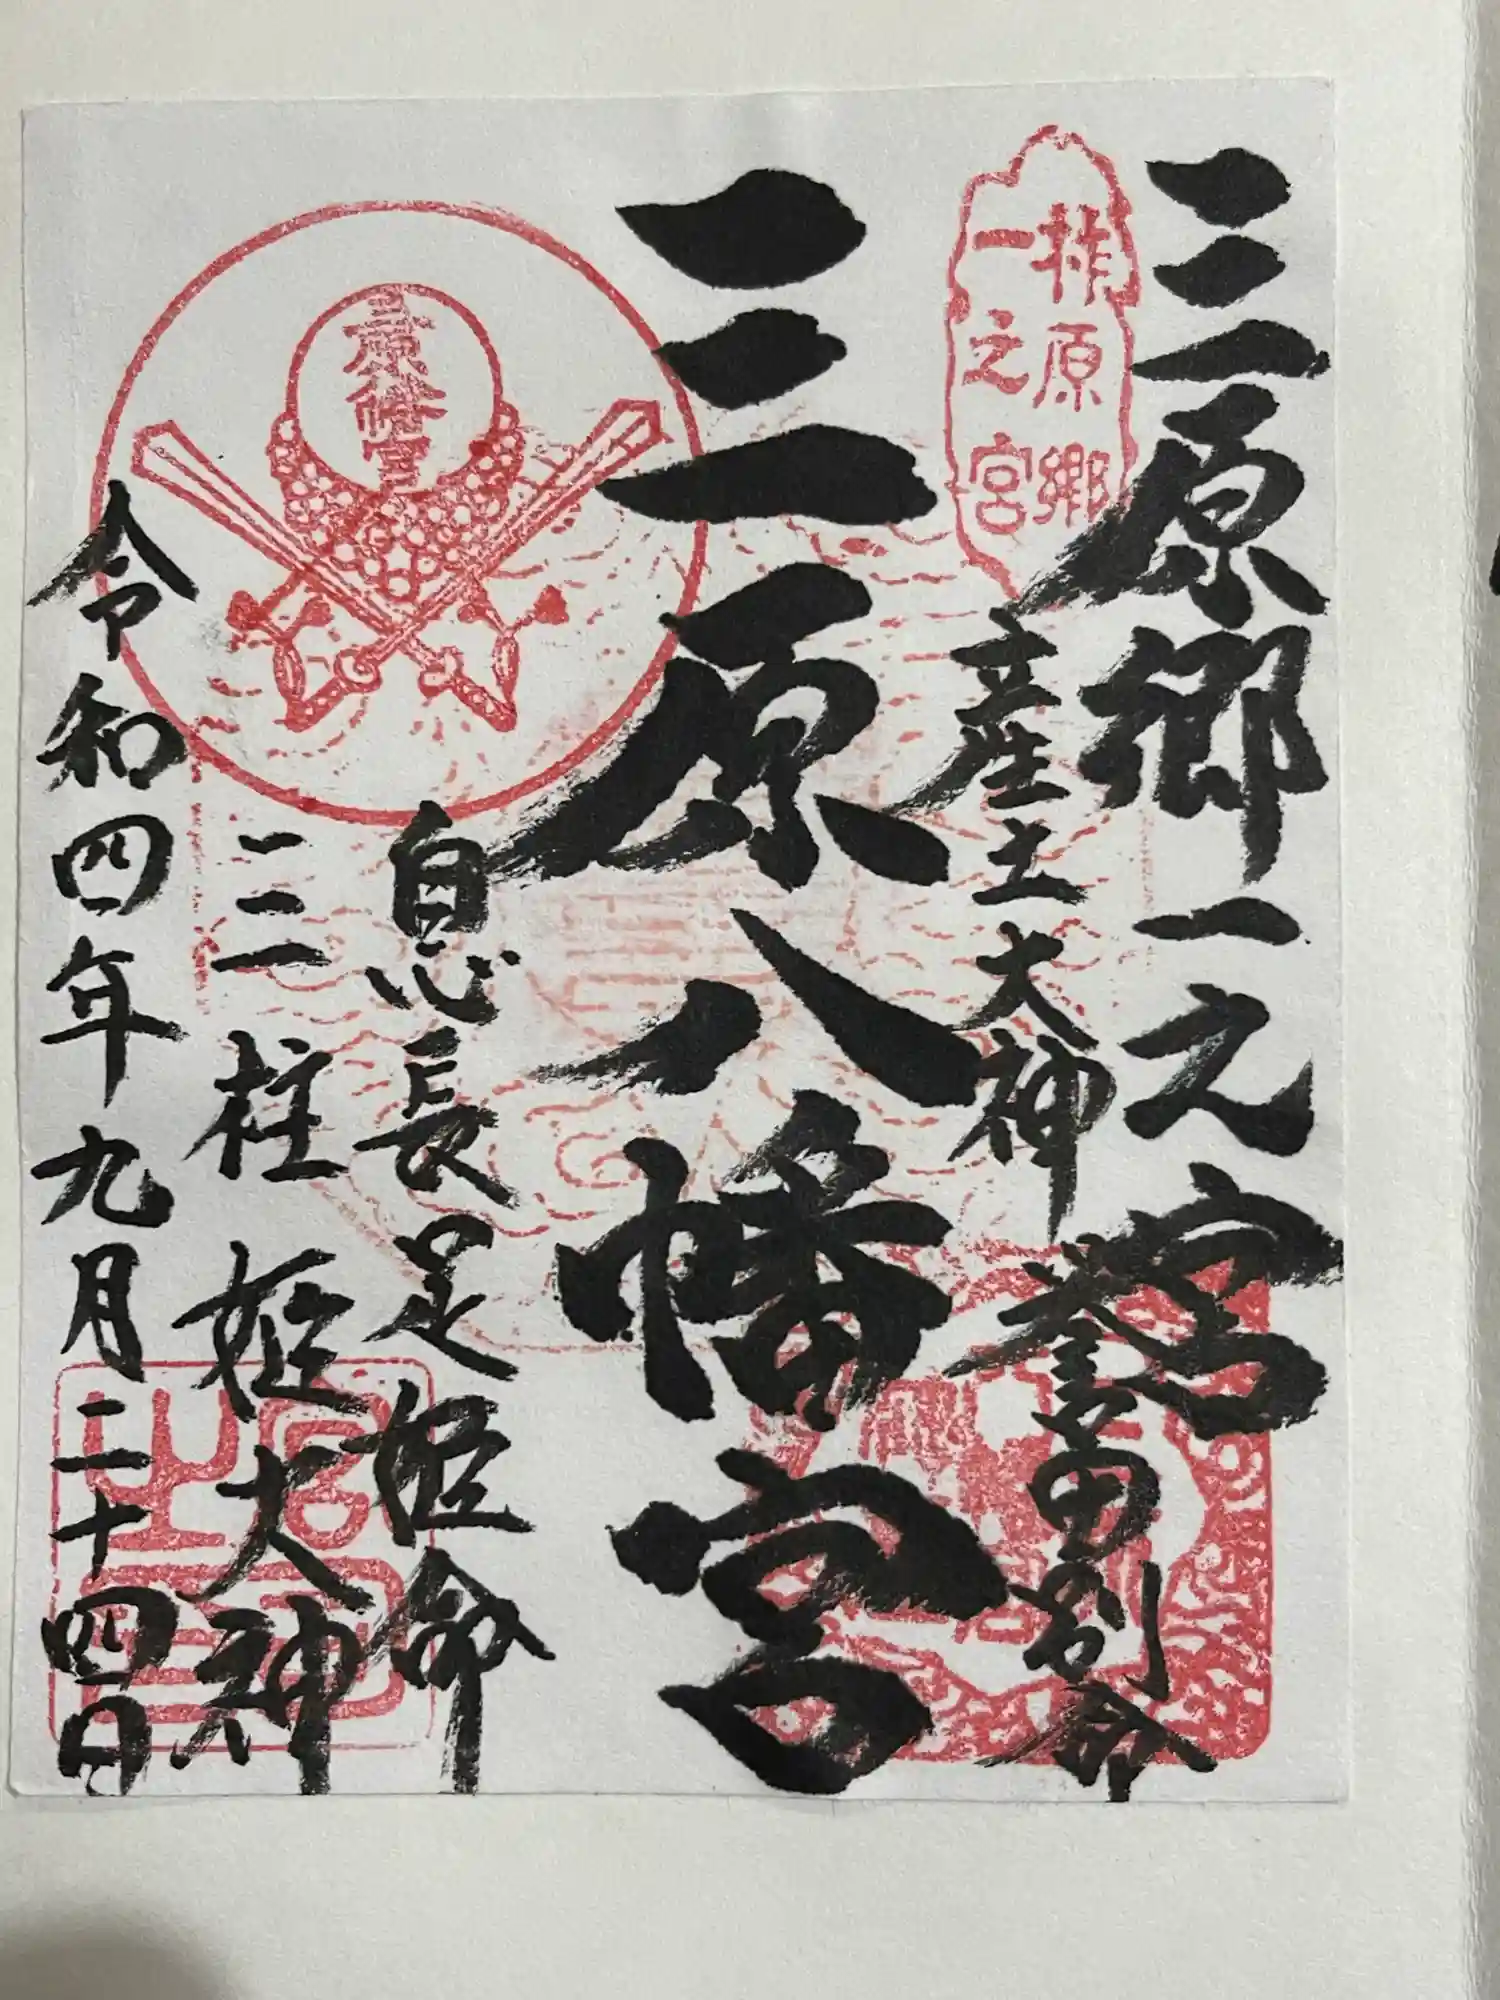 三原郷一之宮
産土大神 誉田別命
三原八幡宮
息長足姫命
三柱 姫大神
令和四年九月二十四日
原郷
一之宮
三原八幡宮